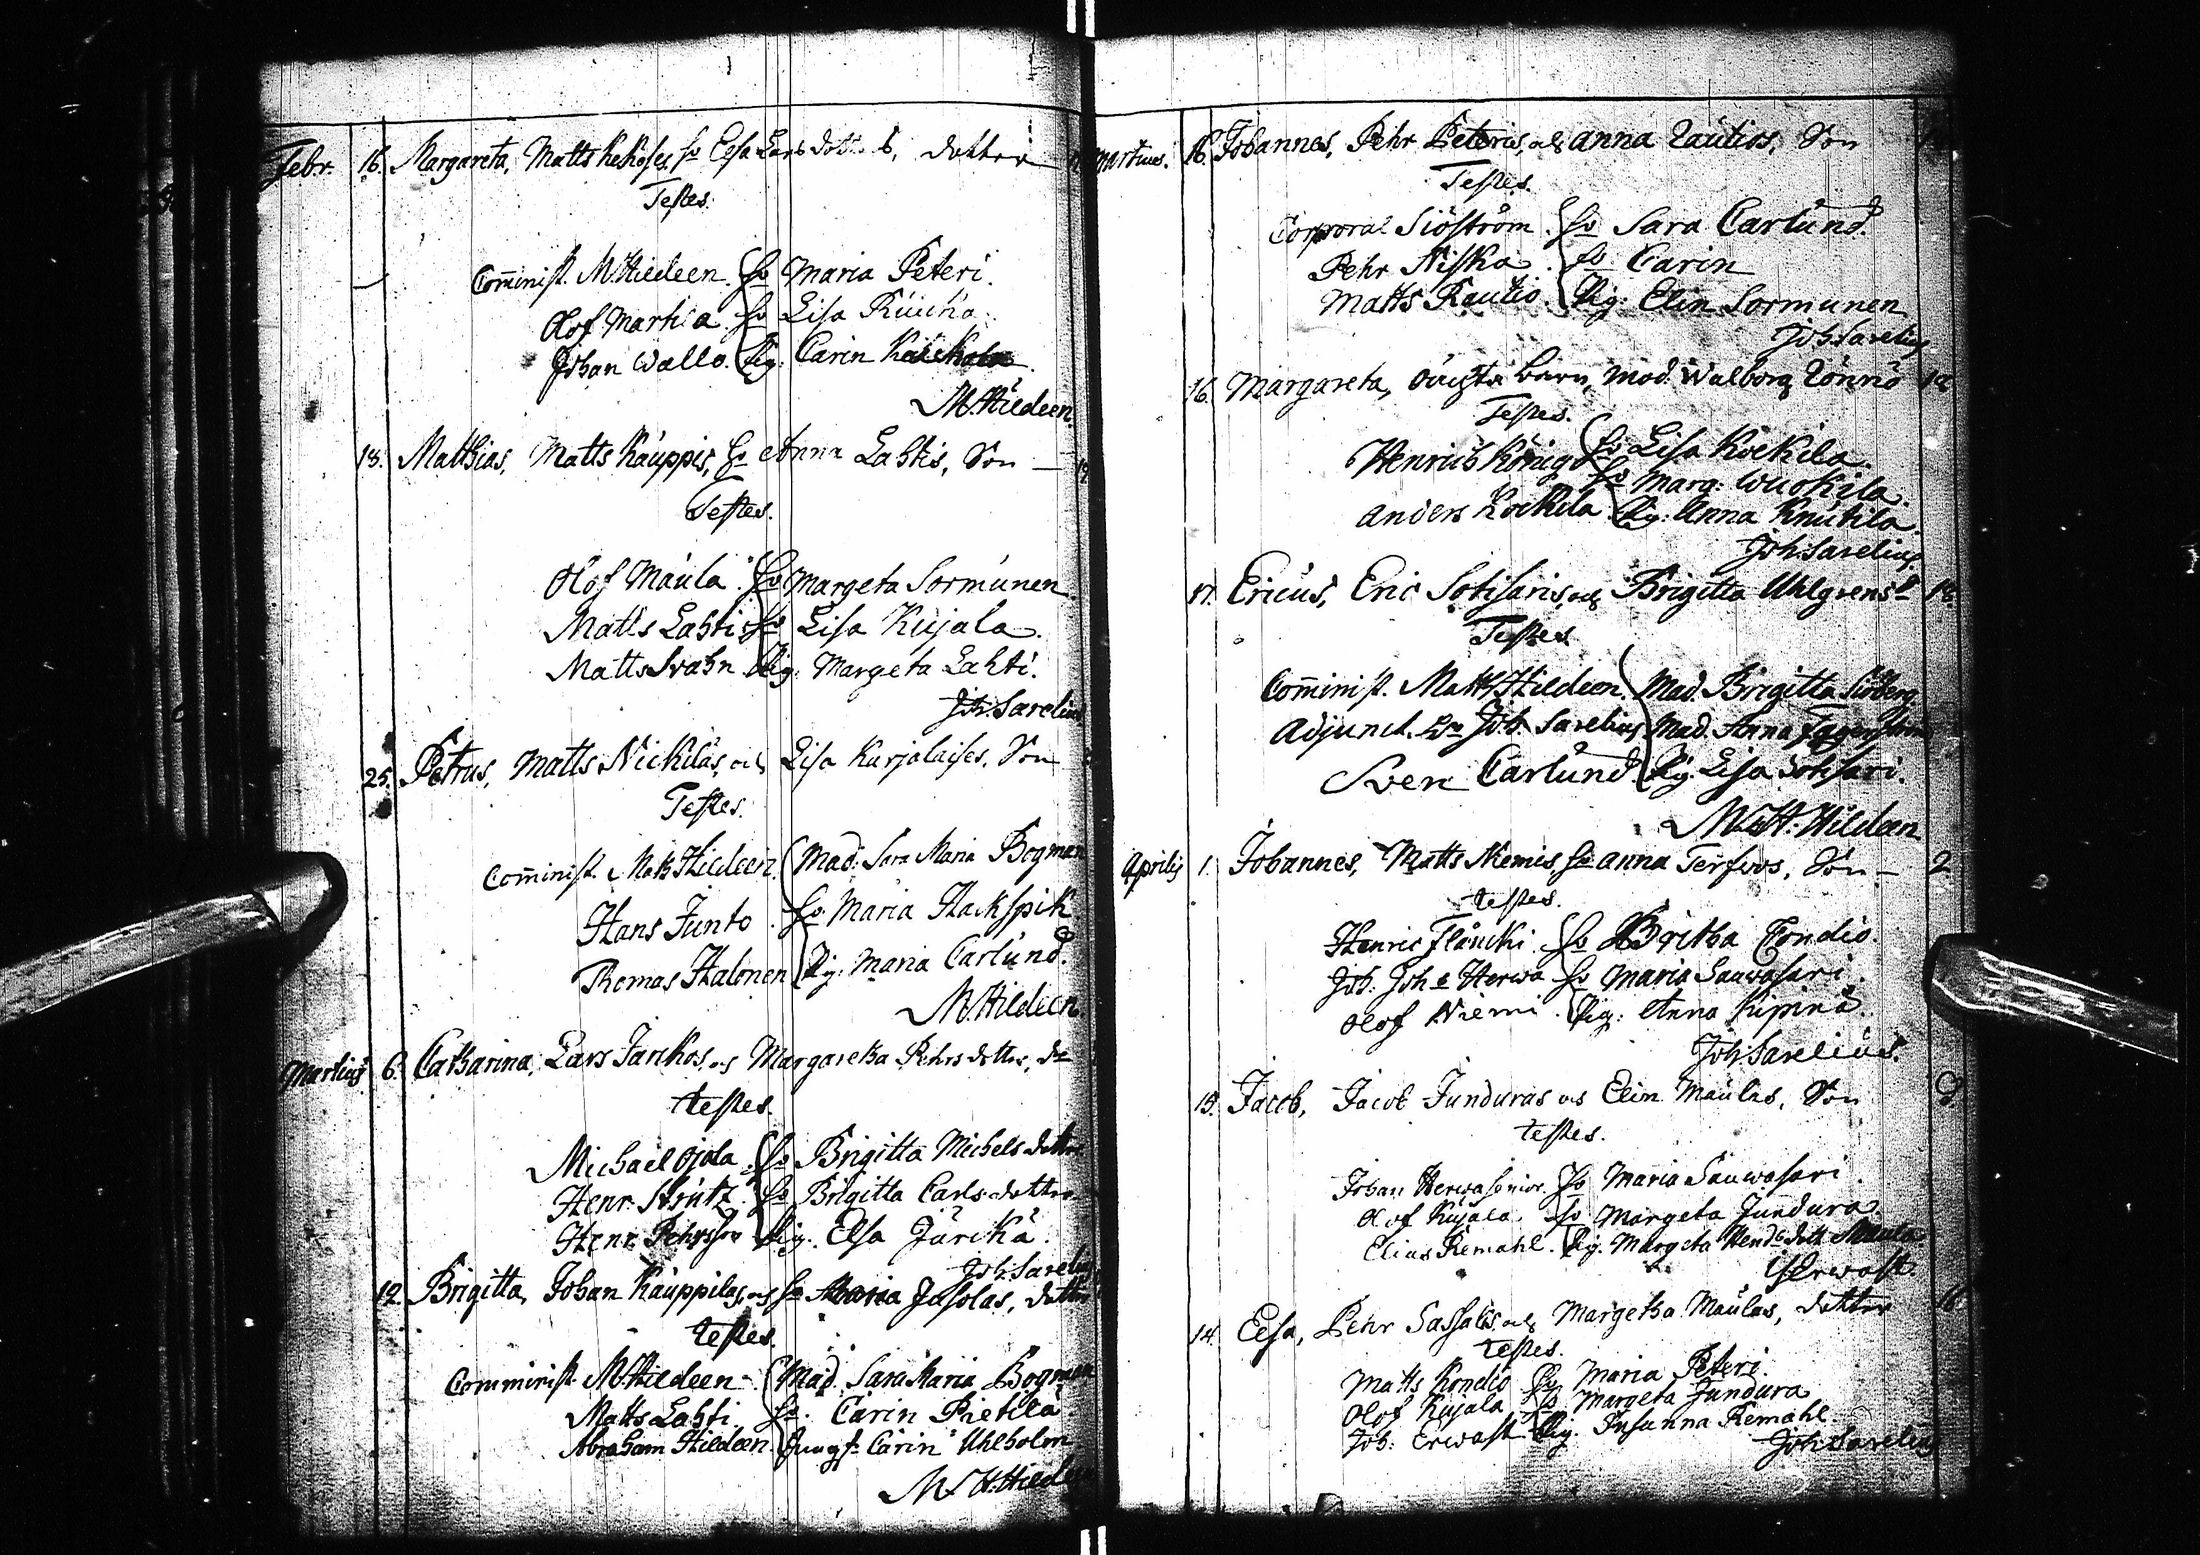 Febr. 16. Margareta, Matts Kekoses, h. Elsa Lars dotters, dotter
Testes.
Comminist. M. Hildeen. h. Maria Peteri.
Olof Marhla h. Lisa
Johan Wallo. Pig. Carin
M. Hildeen
18. Mathias, Matts Kauppis, h. Anna Lahtis, Son
Testes.
Olof Maula. h. Margeta Sormunen
Matts Lahti h. Lisa Kujala.
Matts Svahn Pig. Margeta Lahti.
Joh. Sarelius
25. Petrus, Matts Nickilas, och Lisa Karjalaises, Son
Testes.
Comminist. Matts Hildeen. Mad. Sara Maria Bogman
Hans Junto h. Maria Hackspik
Thomas Halonen Pig. Maria Carlund.
M. Hildeen
Martius 6. Catharina, Lars Jankos, och Margareta Pehrs dotter, dr
testes.
Michael Ojala h. Brigitta Michels dotter
Henr. h. Brigitta Carls dotter
Henr. Pehrsson Pig. Elsa
Joh. Sarelius
12. Brigitta, Johan Kauppilas, och h. Maria Jusolas, dotter
testes.
Comminist M. Hildeen Mad. Sara Maria Bogman
Matts Lahti. h. Carin Pietila
Abraham Hildeen. Jungf. Carin Uhlholm
M. Hildeen
Martius. 16. Johannes, Pehr Peteris, och Anna Rautios, Son
Testes.
Corporal Siöström. h. Sara Carlund.
Pehr Niska. h. Carin
Matts Rautio. Pig. Elin Sormunen
Joh. Sarelius
16. Margareta, oächta barn, Mod. Walborg Rönnö 18
Testes.
Henric König h. Lisa Koekila.
h. Marg. Wuokila.
Anders Koekila. Pig. Anna Knutila.
Joh. Sarelius
17. Ericus, Eric Sotisaris, och Brigitta Uhlgrens 18.
Testes.
Comminist. Matts Hildeen Mad. Brigitta
Adjunct. Joh. Sarelius Mad. Anna Fagerström
Sven Carlund. Pig. Lisa Sotisari.
Matth. Hildeen
Aprilis 1. Johannes, Matts Niemis, h. Anna Terfwos, Son 2
testes.
Henric h. Britha Tondio.
Joh. Joh. Herwa h. Maria Sauwosari.
Olof Niemi. Pig. Anna Kipinä.
Joh. Sarelius.
13. Jacob, Jacob Junduras och Elin Maulas, Son
testes.
Johan Herwa senior. h. Maria Sauwosari.
Olof Kujala. h. Margeta Jundura.
Elias Remahl. Pig. Margeta Hend. dott. Maula
Erwast.
14. Elsa, Pehr Sassalis och Margetha Maulas, dotter 16
testes.
Matts Kondio h. Maria Peteri.
Olof Kujala h. Margeta Jundura
Joh. Erwast Pig. Susanna Remahl.
Joh. Sarelius